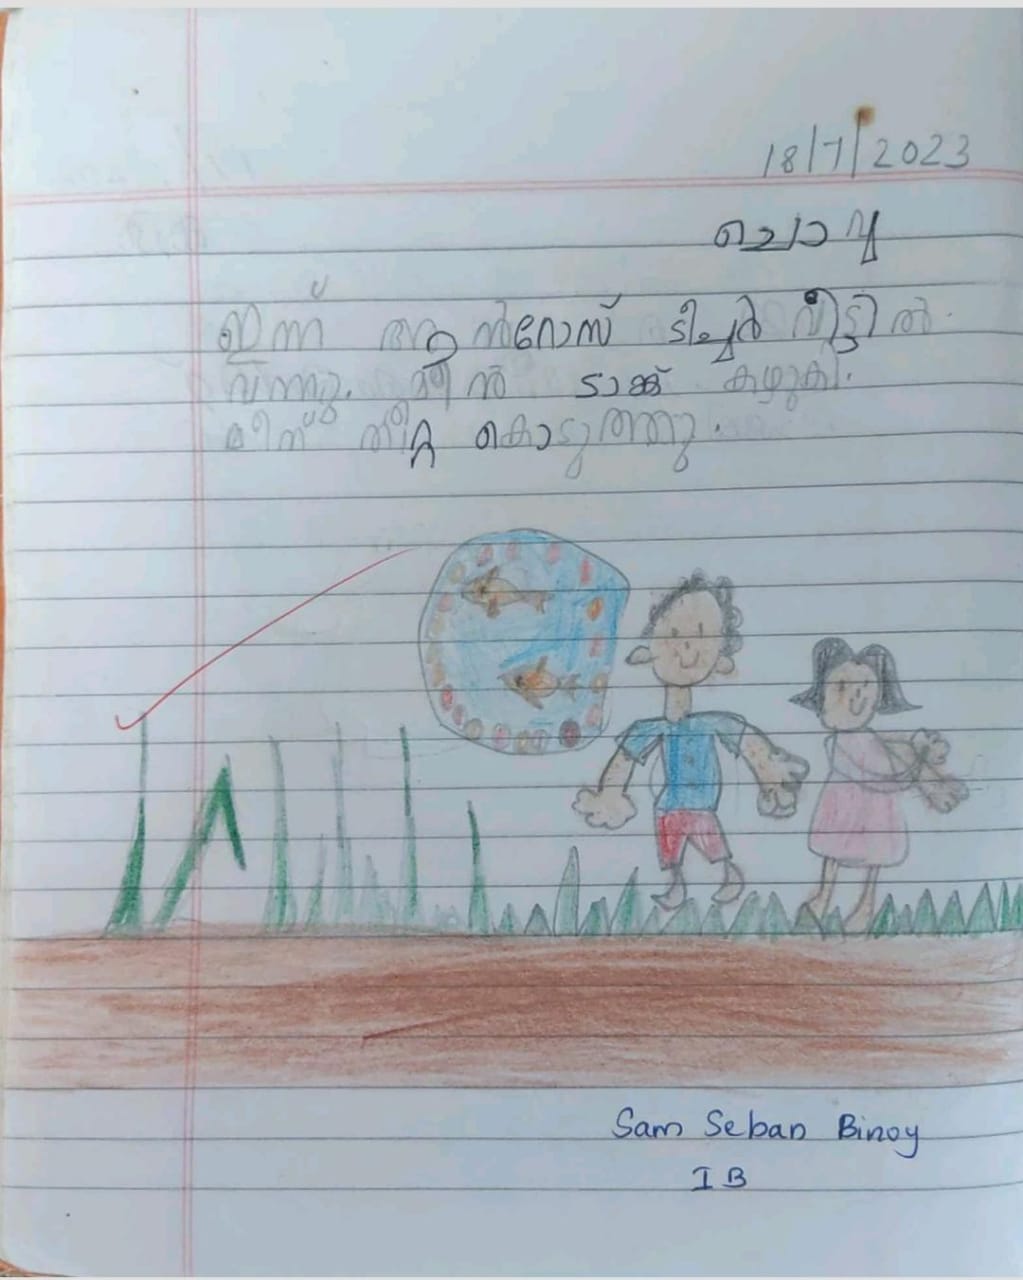 18/7/2023
ചൊവ്വ
ഇന്ന് ആൻറോസ് ടീച്ചർ വീട്ടിൽ
വന്നു. മീൻ ടാങ്ക് കഴുകി.
മീന് തീറ്റ കൊടുത്തു.
Sam Seban Binoy
I B